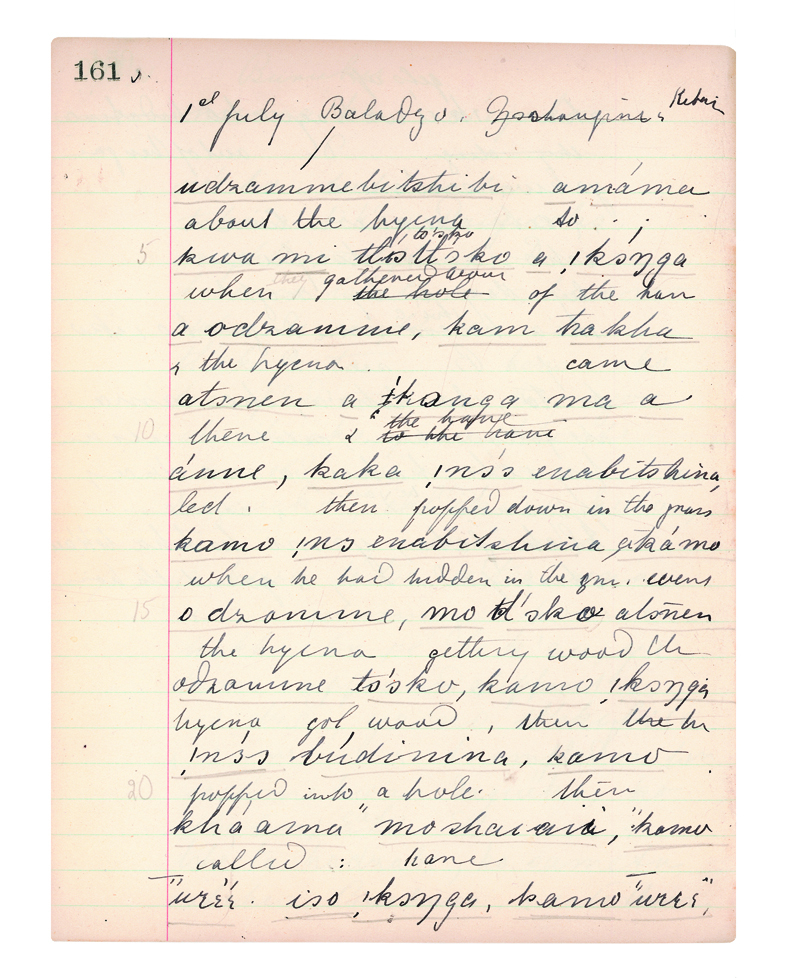 161
1st July Baladzo. Kebai
udzammebitshibi amáma
about the hyena to . . ;
to'sko
5 kwa mi tlo'sko a !kɔŋga
they gathered wood
when the hole of the hare
a odzamme, kam trakha
& the hyena. came
atsnen a !kɔnga ma a
the hare
10 there & to the hare
ánne, kaka !nɔ's enabitshina,
led. then popped down in the grass
kamo !nɔ enabitshina akámo
when he had hidden in the
15 odzamme, mo tl'sko atsnen
the hyena getting wood the
odzamme to'sko, kamo !kɔŋga
hyena got wood, then the
!nɔ's búdinina, kamo
20 popped into a hole. then
khá ama "moshaiaiá," kamo
called : hare
"urɛɛ. iso !kɔŋga, kamo "urɛɛ",